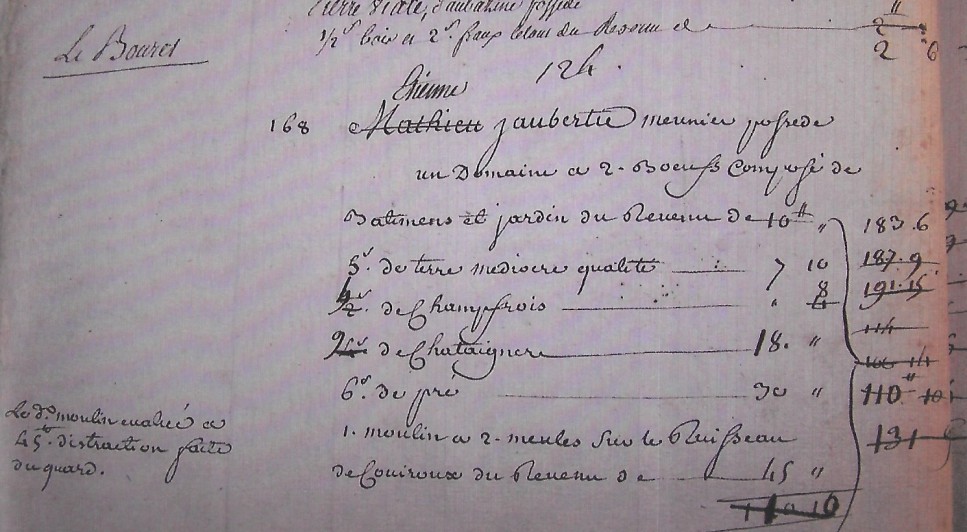 Pierre Viale, d'aubazine possede
1/2 s. bois et 2 s. faux du Revenu de 2
2 6
Le Boures
124.
Etienne
168 Mathieu jaubertie meunier possede
un Domaine a 2. Boeufs Composé de
Batimens et jardin du Revenu de 10 # "
183.6
5 s. de terre mediocre qualité 7 10
187.9
de Champfrois " 8
191.15
114
de Chataignere 18. "
6 s. de pré 30 "
110
Le d. moulin evalué a
45 # distraction faite
du quard.
1. moulin a 2. meules Sur le Ruisseau
131
de Couiroux du Revenu de 45 "
110 10